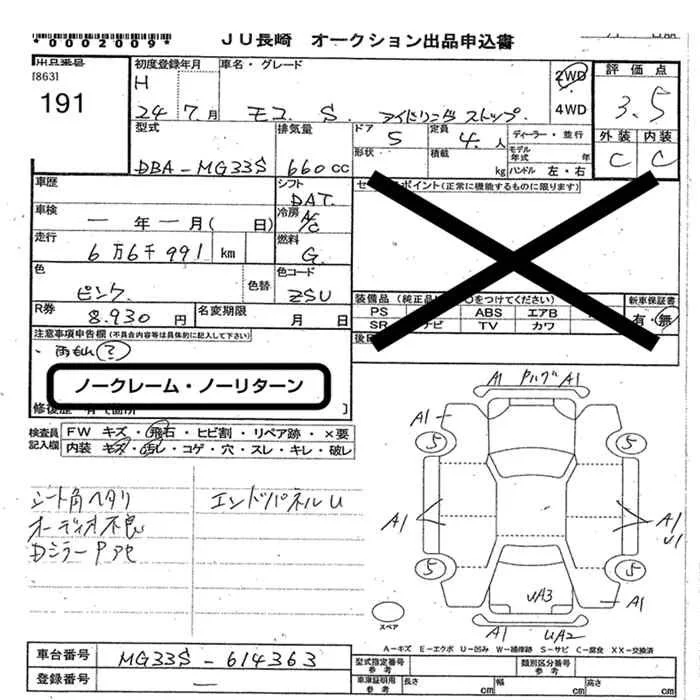 *0002009*
JU長崎 オークション出品申込書
出品番号
[863]
191
初度登録年月
H
24 7月
車名・グレード
モコ S アイドリングストップ
2WD
4WD
評価点
3.5
外装 内装
C C
型式
DBA-MG33S
排気量
660cc
ドア
5
定員
4人
ディーラー・並行
形状
積載
kg
モデル年式 年
ハンドル 左・右
車歴
シフト
DAT
セールスポイント(正常に機能するものに限ります)
車検
ー年ー月( 日)
冷房
A/C
走行
6万6千991 km
燃料
G
色
ピンク
色替
色コード
ZSU
装備品
新車保証書
有・無
PS ABS エアB
SR TV カワ
R券
8.930円
名変期限
月 日
注意事項申告欄(不具合内容等は具体的に記入して下さい)
・雨もれ(?)
ノークレーム・ノーリターン
検査員記入欄
FW キズ・飛石・ヒビ割・リペア跡・×要
内装 キズ・汚レ・コゲ・穴・スレ・キレ・破レ
シート角ヘタリ
オーディオ不良
エンドパネルU
A1 A1
A1
5 5
A1 A1
U1
5 5
UA3 A1
スペア
A1 UA2
A-キズ E-エクボ U-凹み W-補修跡 S-サビ C-腐食 XX-交換済
車台番号
MG33S-614363
登録番号
ー
型式指定番号参考
類別区分番号参考
車庫証明用参考
長さ cm
幅 cm
高さ cm